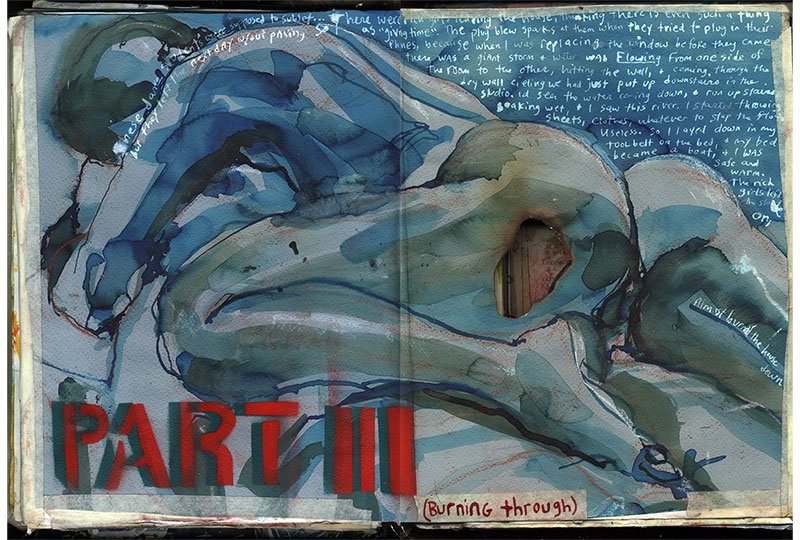 supposed to sublet...
but they left the next day w/out paying
There were
leaving the house, imagining there is even such a thing
as "giving time". The plug blew sparks at them when they tried to plug in their
phones, because when I was replacing the window before they came
there was a giant storm & water was Flowing from one side of
the room to the other, hitting the wall, & coming through the
dry wall cieling we had just put up downstairs in the
studio. Id seen the water coming down, & run up stairs
soaking wet, & I saw this river. I started throwing
sheets, clothes, whatever to stop the flo
Useless. So I layed down in my
tool belt on the bed, & my bed
became a boat, & I was
safe and
warm.
The rich
girls left
on,
Almost burned the house
down
PART III
(Burning through)